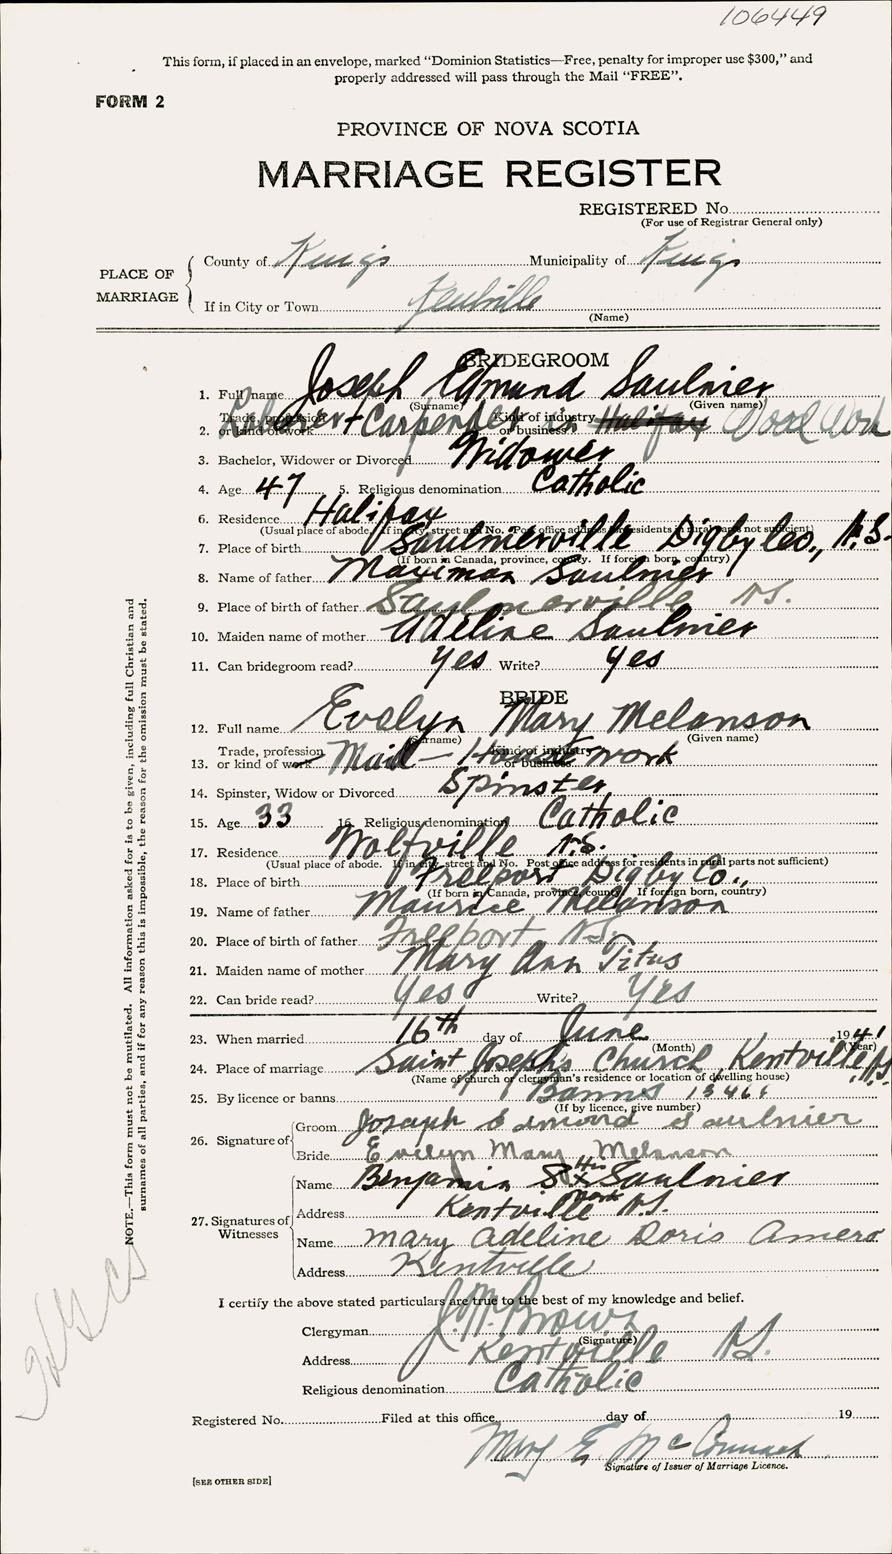 106449
This form, if placed in an envelope, marked "Dominion Statistics—Free, penalty for improper use $300," and
properly addressed will pass through the Mail "FREE".
FORM 2
PROVINCE OF NOVA SCOTIA
MARRIAGE REGISTER
REGISTERED No.
(For use of Registrar General only)
PLACE OF MARRIAGE
County of Kings Municipality of Kings
If in City or Town Kentville
(Name)
BRIDEGROOM
1. Full name Joseph Edmund Saulnier
(Surname) (Given name)
2. Trade, profession or kind of work Laborer + Carpenter Kind of industry or business in Halifax Wood Work
3. Bachelor, Widower or Divorced Widower
4. Age 47 5. Religious denomination Catholic
6. Residence Halifax
(Usual place of abode. If in city, street and No. Post office address for residents in rural parts not sufficient)
7. Place of birth Saulnierville Digby Co., N.S.
(If born in Canada, province, county. If foreign born, country)
8. Name of father Maximan Saulnier
9. Place of birth of father Saulnierville N.S.
10. Maiden name of mother Adeline Saulnier
11. Can bridegroom read? Yes Write? Yes
BRIDE
12. Full name Evelyn Mary Melanson
(Surname) (Given name)
13. Trade, profession or kind of work Maid — Kind of industry or business House work
14. Spinster, Widow or Divorced Spinster
15. Age 33 16. Religious denomination Catholic
17. Residence Wolfville N.S.
(Usual place of abode. If in city, street and No. Post office address for residents in rural parts not sufficient)
18. Place of birth Freeport Digby Co.,
(If born in Canada, province, county. If foreign born, country)
19. Name of father Maurice Melanson
20. Place of birth of father Freeport N.S.
21. Maiden name of mother Mary Ann Titus
22. Can bride read? Yes Write? Yes
23. When married 16th day of June 1941
(Month) (Year)
24. Place of marriage Saint Joseph's Church, Kentville, N.S.
(Name of church or clergyman's residence or location of dwelling house)
25. By licence or banns Banns
(If by licence, give number)
26. Signature of Groom Joseph Edmond Saulnier
Bride Evelyn Mary Melanson
27. Signatures of Witnesses
Name Benjamin S. His x Saulnier
mark
Address Kentville N.S.
Name Mary Adeline Doris Amero
Address Kentville
I certify the above stated particulars are true to the best of my knowledge and belief.
Clergyman J. M. Brown
(Signature)
Address Kentville N.S.
Religious denomination Catholic
Registered No. Filed at this office day of 19
Mary E. McConnach
Signature of Issuer of Marriage Licence.
[SEE OTHER SIDE]
NOTE.—This form must not be mutilated. All information asked for is to be given, including full Christian and
surnames of all parties, and if for any reason this is impossible, the reason for the omission must be stated.